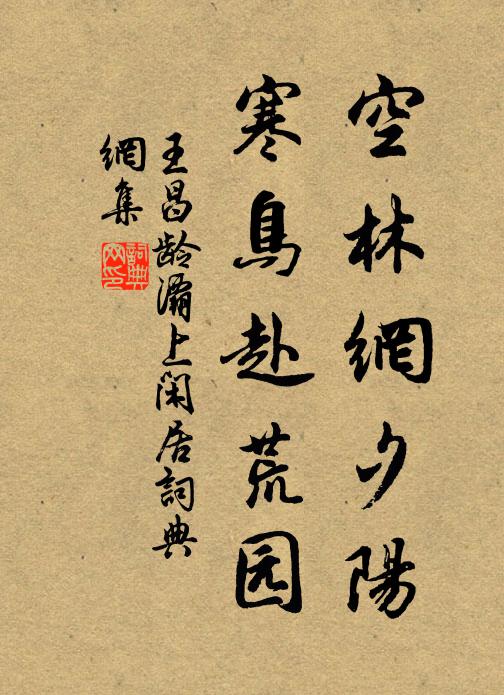 空林網夕陽
寒鳥赴荒园
王昌龄灞上闲居詞典
網集
詞典
网印